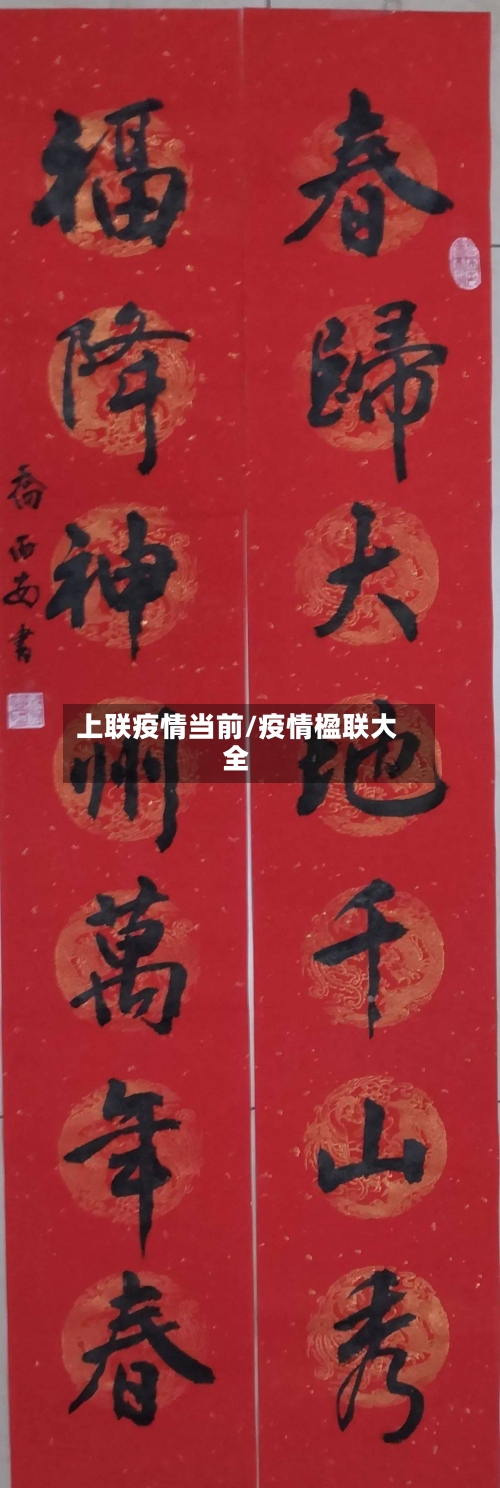 春歸大地千山秀
福降神州萬年春
喬西安書
上联疫情当前/疫情楹联大
全